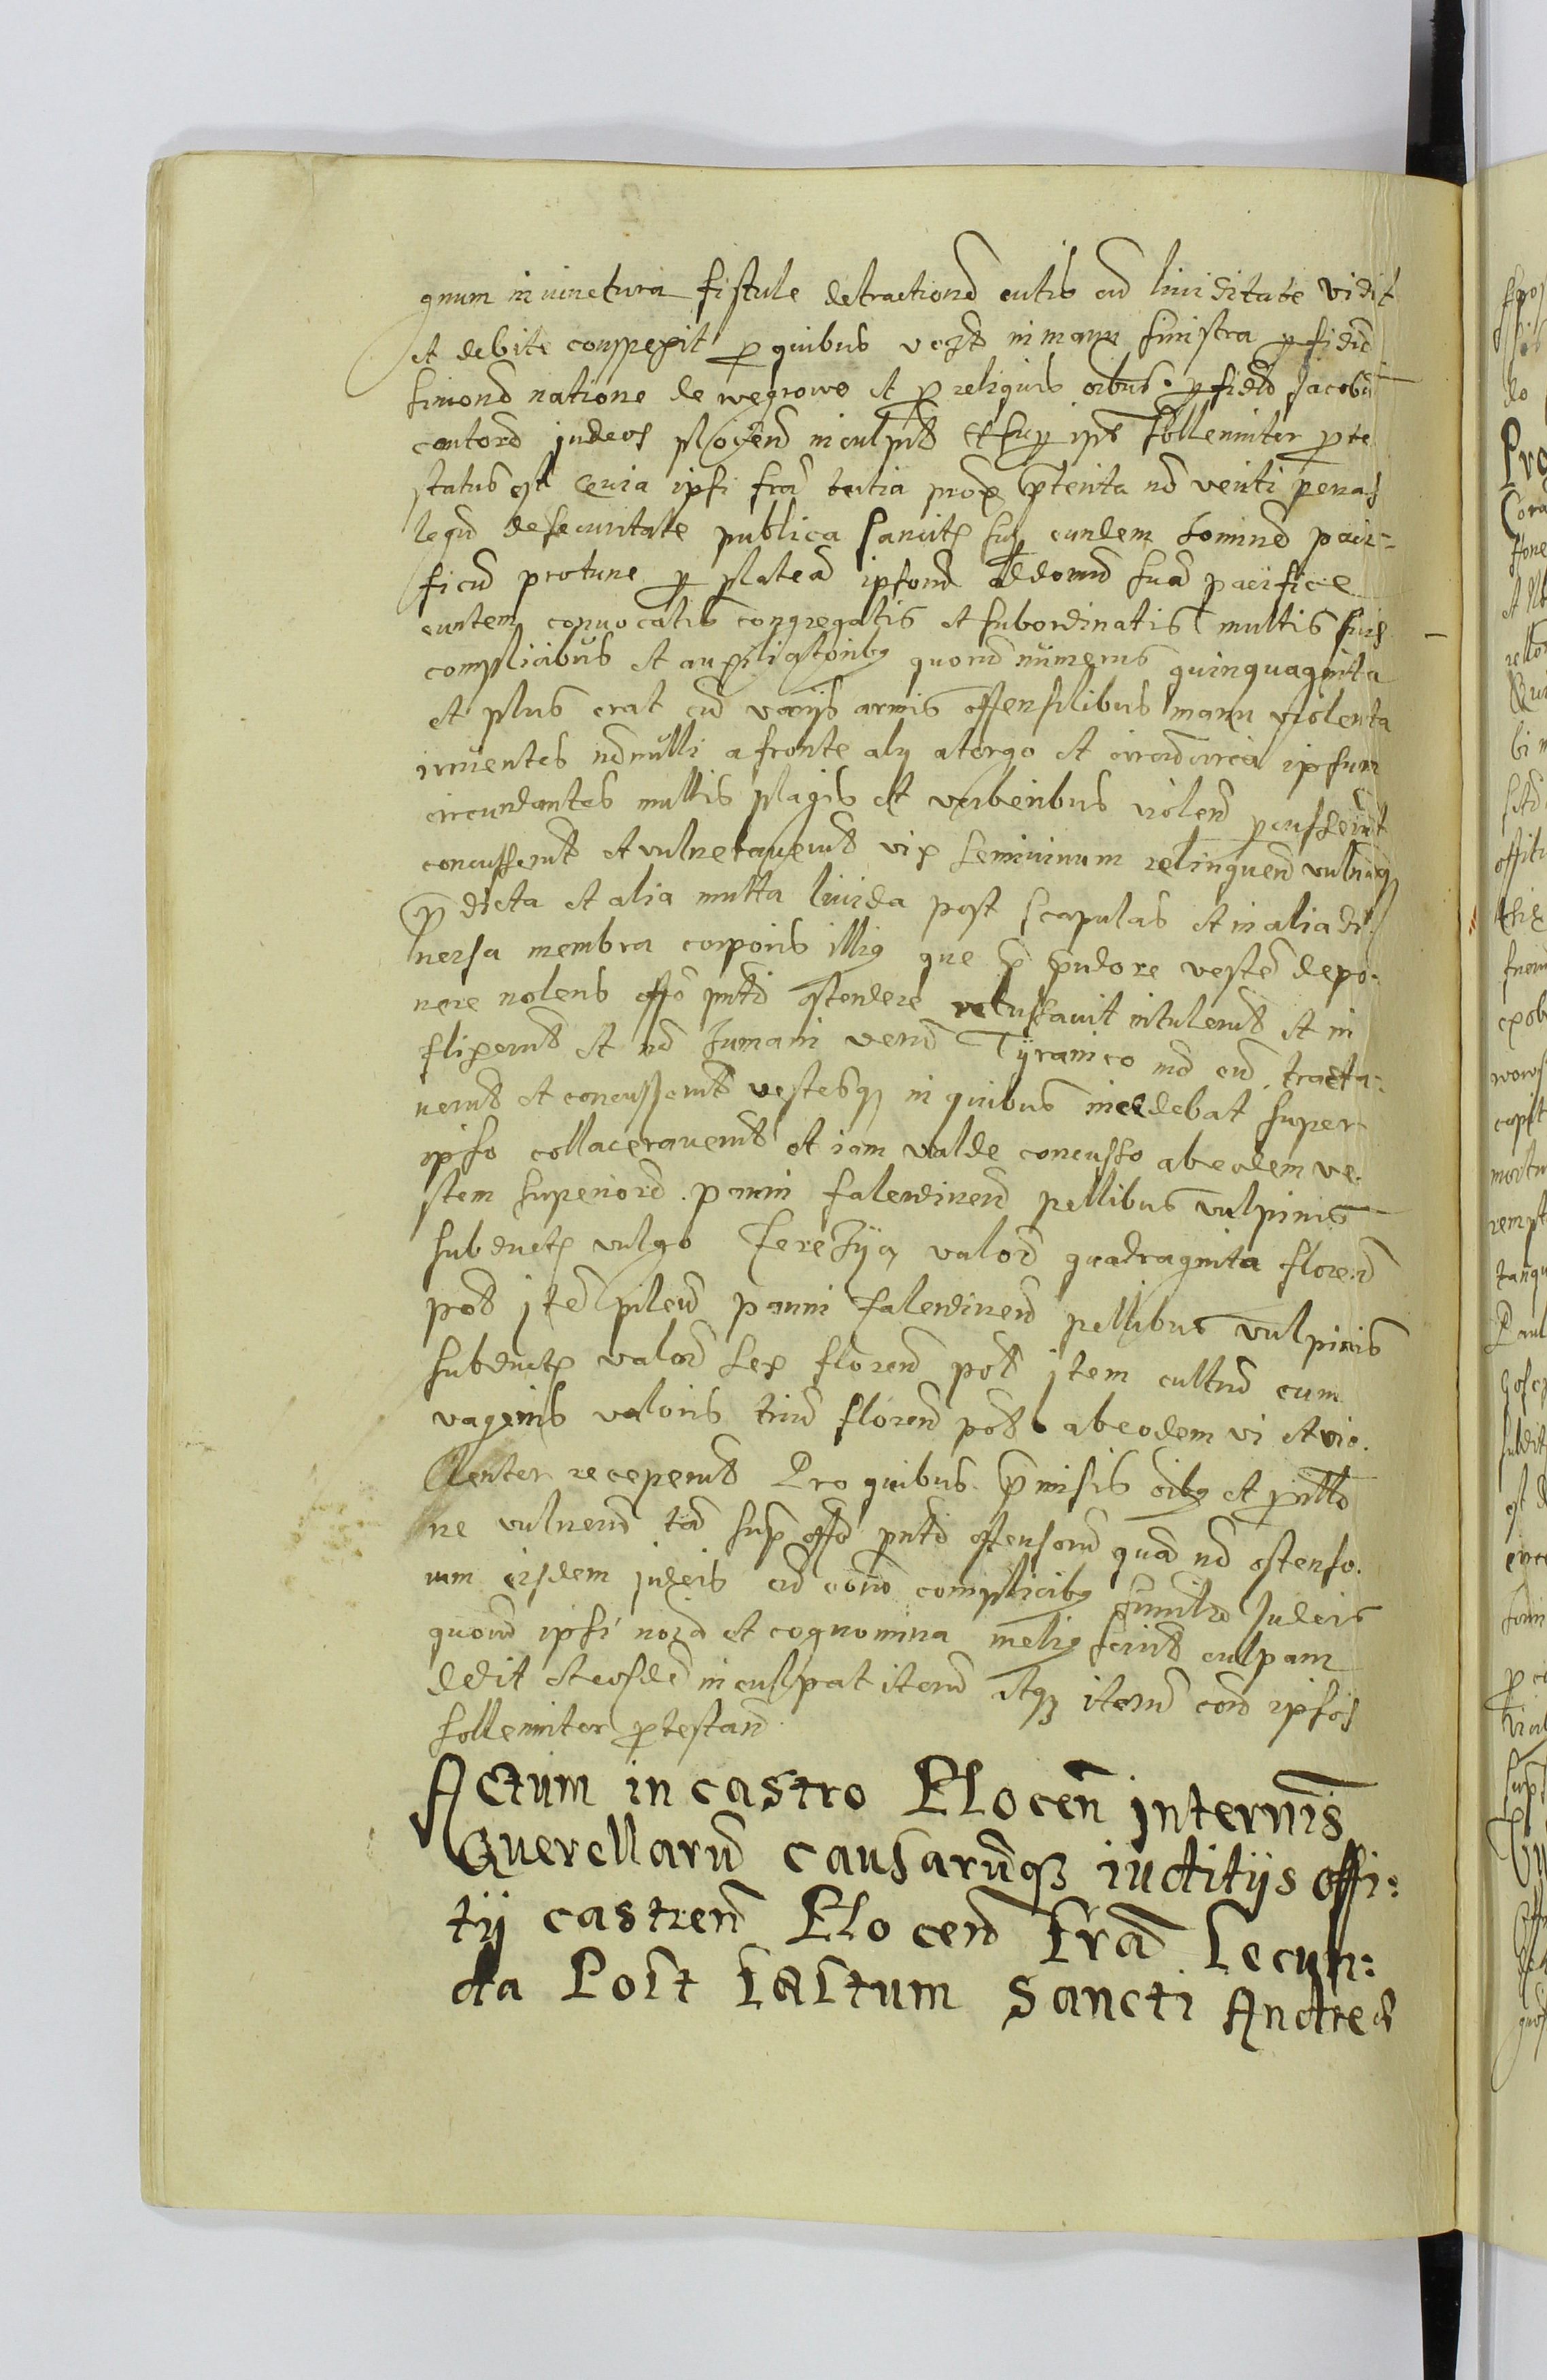 gnum in iunctura fistule detractionem cutis cum liuiditate vidit
et debite conspexit p quibus vero in manu sinistra pfidum
Simonem natione de wegrowo et p reliquis oibus pfidum Jacobum
cantorem judeos plocen inculpat et sup ipos solleniter prote
status est Quia ipsi fria tertia prox preterita non veriti penas
legum de securitate publica sancitas sup eundem hominem paci-
ficum protunc p plateam ipsorum ad domum suam pacifice
euntem conuocatis congregatis et subordinatis multis suis
complicibus et auxiliatoribus quorum numerus quinquaginta
et plus erat cum varijs armis offensilibus manu violenta
irruentes nonnulli a fronte alij a tergo et circumcirca ipsum
circundantes multis plagis et verberibus violen percusserunt
concusserunt et vulnerauerunt vix seminimum relinquen vulneraque
predicta et alia multa liuida post scapulas et in alia di-
uersa membra corporis illius que pre pudore vestem depo-
nere nolens offo pnti ostendere recusauit intulerunt et in
flixerunt et non humani verum Tyranico modo eum tracta-
uerunt et concusserunt vestesque in quibus incedebat super
ipso collacerauerunt et iam valde concusso ab eodem ve-
stem superiorem panni falendinen pellibus vulpinis
subductam vulgo ferezya valoris quadraginta floren
pol item pileum panni falendinen pellibus vulpinis
subductum valoris sex floren pol item cultrum cum
vaginis valoris trium floren pol ab eodem vi et vio-
lenter receperunt Pro quibus premissis oibus et pntatio
ne vulnerum tam sup offo pnti ostensorum quam non ostenso-
rum eisdem judeis cum eorum complicibus similiter Judeis
quorum ipsi noia et cognomina melius sciunt culpam
dedit et eosdem inculpat iterum atque iterum contra ipsos
solleniter protestan
Actum in castro Plocen in terminis
Querellarum causarumque iuditijs offi-
tij castren Plocen Fria Secun-
da Post Fæstum Sancti Andreæ